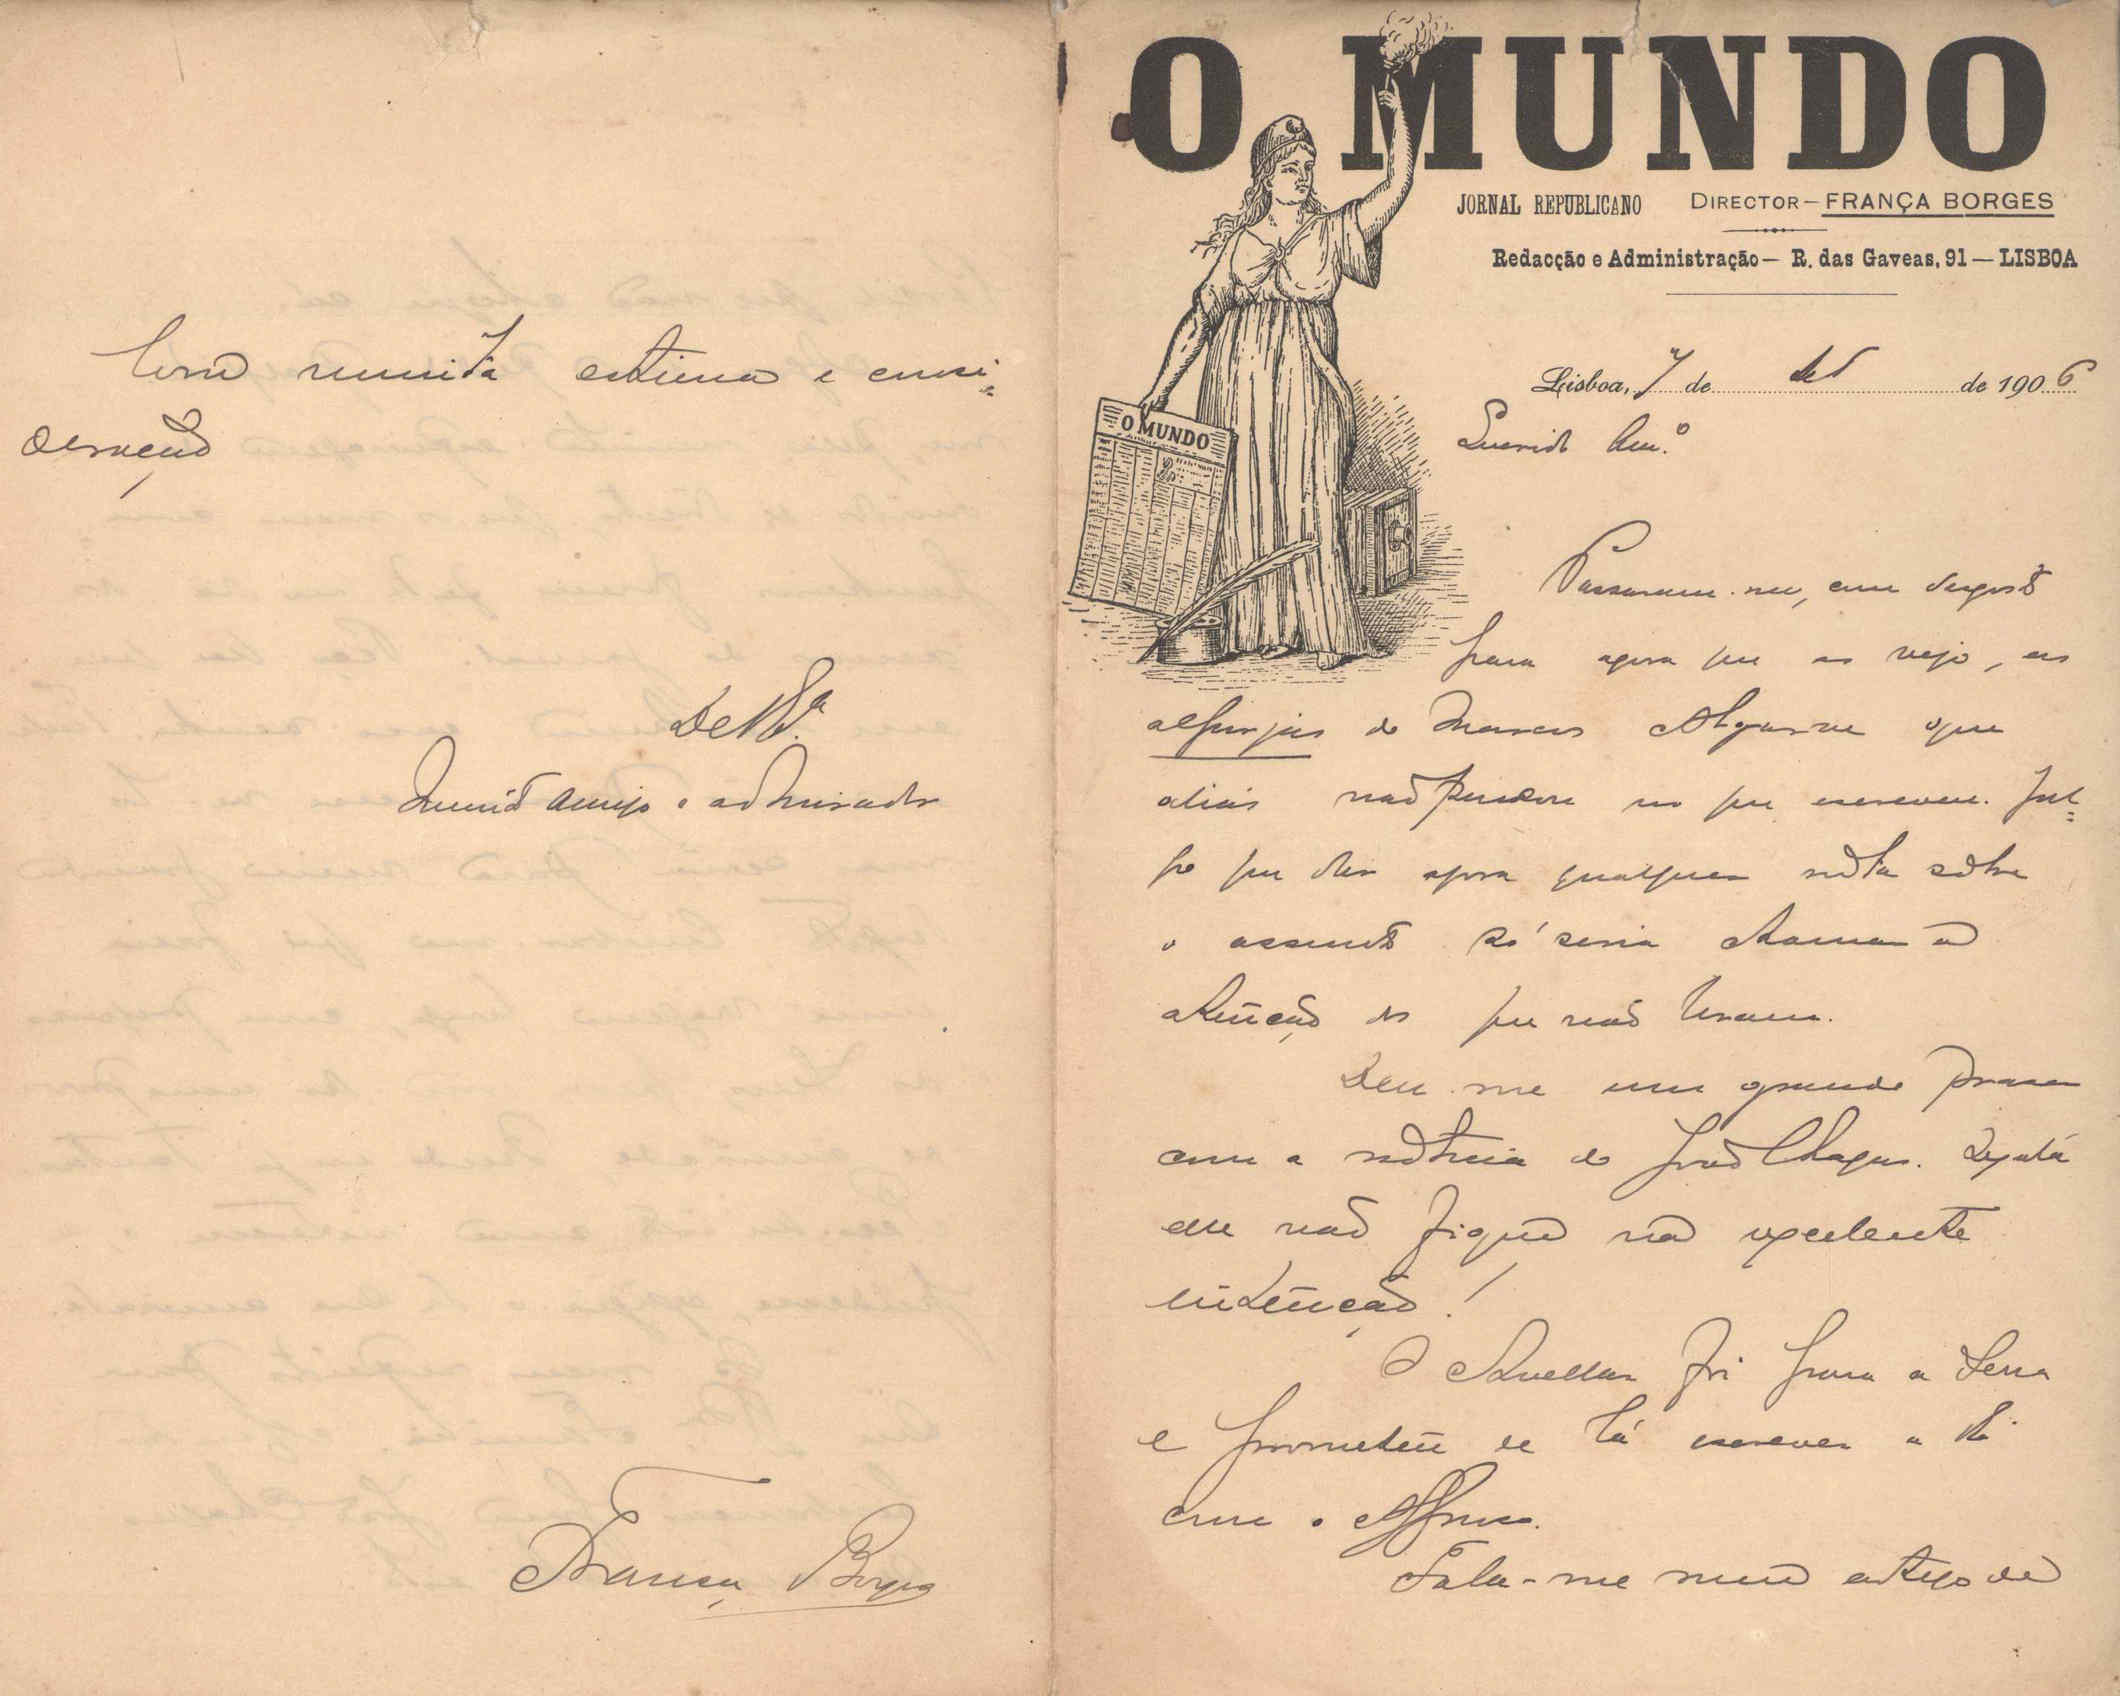 O MUNDO
JORNAL REPUBLICANO DIRECTOR — FRANÇA BORGES
Redacção e Administração — R. das Gaveas, 91 — LISBOA
O MUNDO
Lisboa, 7 de de 1906
Querido Am.º
Passaram-me, com desgosto
para agora que as vejo, as
alforjas do Algarve que
aliás não pensou no que escreveu. Jul=
go que dar agora qualquer nota sobre
o assunto só seria chamar a
atenção dos que não leram.
Deu-me um grande prazer
com a noticia do João Chagas. Oxalá
elle não fique na excelente
intenção!
O Avellar foi para a terra
e prometeu de lá escrever a
com o Affonso.
Fala-me num artigo de
Com muita estima e consi=
deração
De V. Ex.ª
Muito amigo e admirador
França Borges